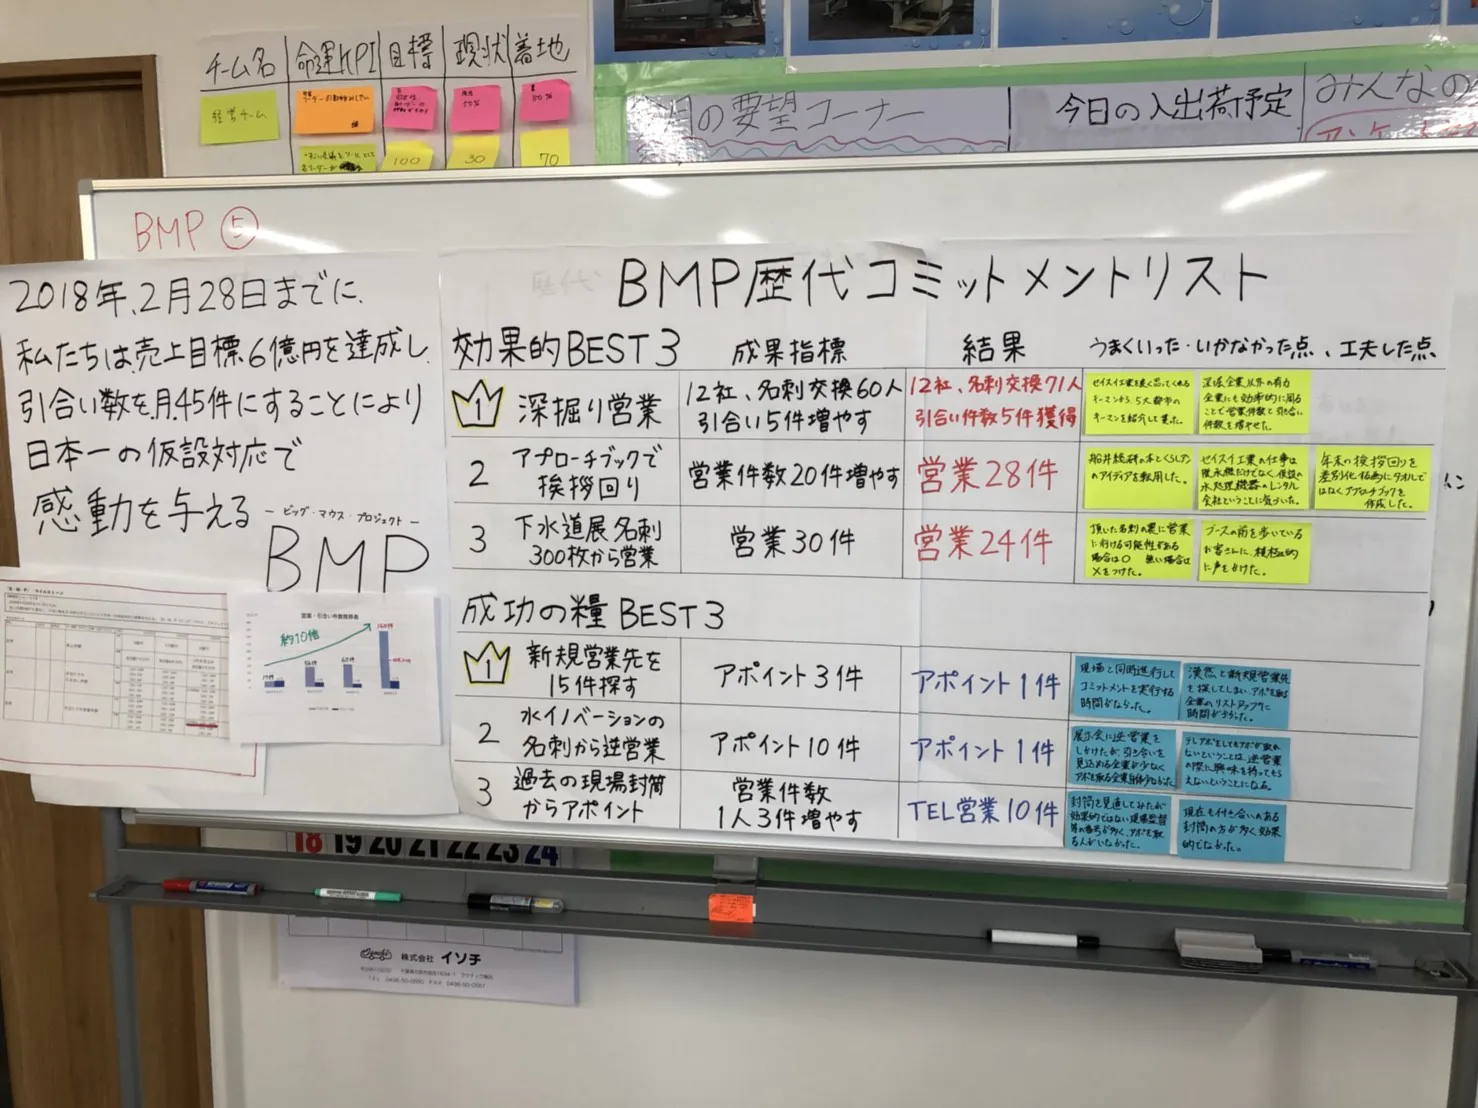 チーム名 命運KPI 目標 現状 着地
経営チーム
50%
80%
100 30 70
の要望コーナー
今日の入出荷予定
みんなの
BMP ⑤
2018年、2月28日までに、
私たちは、売上目標6億円を達成し、
引合い数を月45件にすることにより
日本一の仮設対応で
感動を与える
ビッグ・マウス・プロジェクト
BMP
営業・引合い件数推移表
約10倍
BMP歴代コミットメントリスト
効果的BEST3 成果指標 結果 うまくいった・いかなかった点、工夫した点
1 深掘り営業
12社、名刺交換60人
引合い5件増やす
12社、名刺交換71人
引合い件数5件獲得
セイスイ工業を良く思ってくれる
キーマンから、5大都市の
キーマンを紹介して貰った。
深堀企業以外の有力
企業にも効率的に周る
ことで営業件数と引き合い
件数を増やせた。
2 アプローチブックで
挨拶回り
営業件数20件増やす
営業28件
船井総研の本とくらしアン
のアイディアを転用した。
セイスイ工業の仕事は
脱水機だけでなく仮設の
水処理機器のレンタル
会社ということに気づいた。
年末の挨拶回りを
差別化
ではなくアプローチブックを
作成した。
3 下水道展名刺
300枚から営業
営業30件
営業24件
頂いた名刺の裏に営業
に行ける可能性がある
場合は○ 無い場合は
×をつけた。
ブースの前を歩いている
お客さんに、積極的
に声をかけた。
成功の糧BEST3
1 新規営業先を
15件探す
アポイント3件
アポイント1件
現場と同時進行して
コミットメントを実行する
時間がなかった。
漠然と新規営業先
を探してしまい、アポを取る
企業のリストアップに
時間がかかった。
2 水イノベーションの
名刺から逆営業
アポイント10件
アポイント1件
展示会に逆営業を
しかけたが、引き合いを
見込める企業が少なく
アポを取る企業自体少なかった。
テレアポをしてもアポが取れ
ないということは、逆営業
の際に興味を持ってもら
えないということになる。
3 過去の現場封筒
からアポイント
営業件数
1人3件増やす
TEL営業10件
封筒を見直してみたが
効果的ではない現場監督
等の番号が多く、アポを取れ
る人がいなかった。
現在も付き合いのある
封筒の方が多く効果
的でなかった。
18 19 20 21 22 23 24
株式会社 イソチ